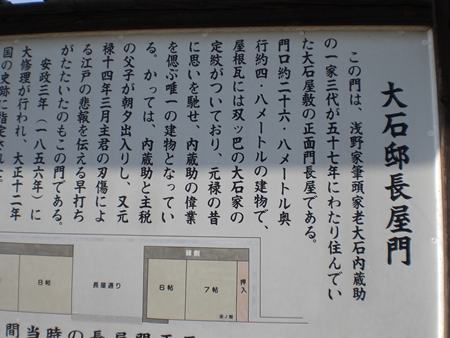 大石邸長屋門
この門は、浅野家筆頭家老大石内蔵助
の一家三代が五十七年にわたり住んでい
た大石屋敷の正面門長屋である。
門口約二十六・八メートル奥
行約四・八メートルの建物で、
屋根瓦には双ッ巴の大石家の
定紋がついており、元禄の昔
に思いを馳せ、内蔵助の偉業
を偲ぶ唯一の建物となってい
る。かっては、内蔵助と主税
の父子が朝夕出入りし、又元
禄十四年三月主君の刃傷によ
る江戸の悲報を伝える早打ち
がたたいたのもこの門である。
安政三年（一八五六年）に
大修理が行われ、大正十二年
国の史跡に指定され
縁側
8帖
長屋通り
6帖
7帖
押入
間当時の長屋門平